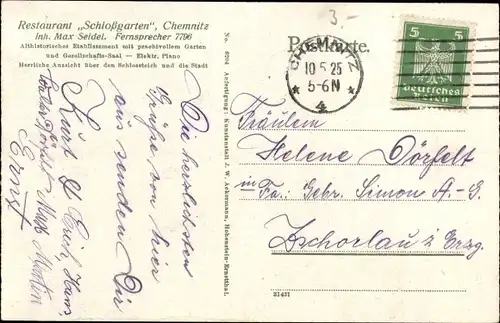 Restaurant „Schloßgarten“, Chemnitz
Inh. Max Seidel. Fernsprecher 7796
Althistorisches Etablissement mit prachtvollem Garten
und Gesellschafts-Saal — Elektr. Piano
Herrliche Aussicht über den Schlossteich und die Stadt
Die herzlichsten
Grüße von hier
aus senden Dir
Kurt
Erich, Hans,
Max Martin
Ernst
No. 6204 Anfertigung: Kunstanstalt J. W. Ackermann, Hohenstein-Ernstthal.
Postkarte.
3.-
CHEMNITZ
10.5.25
5-6N
* 4 *
5 5
Deutsches
Reich
Fräulein
Helene Dörfelt
in Fa: Gebr. Simon A-G.
Zschorlau i. Erzg.
31431